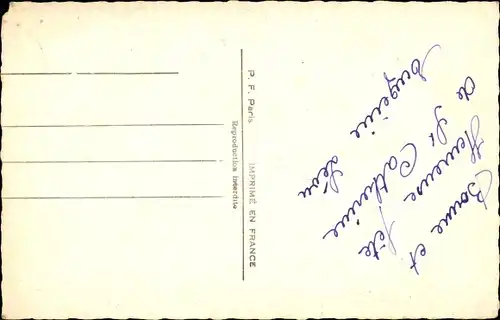 P. F. Paris
IMPRIMÉ EN FRANCE
Reproduction interdite
Bonne et
Heureuse fête
de St Catherine
Eugenie Léon